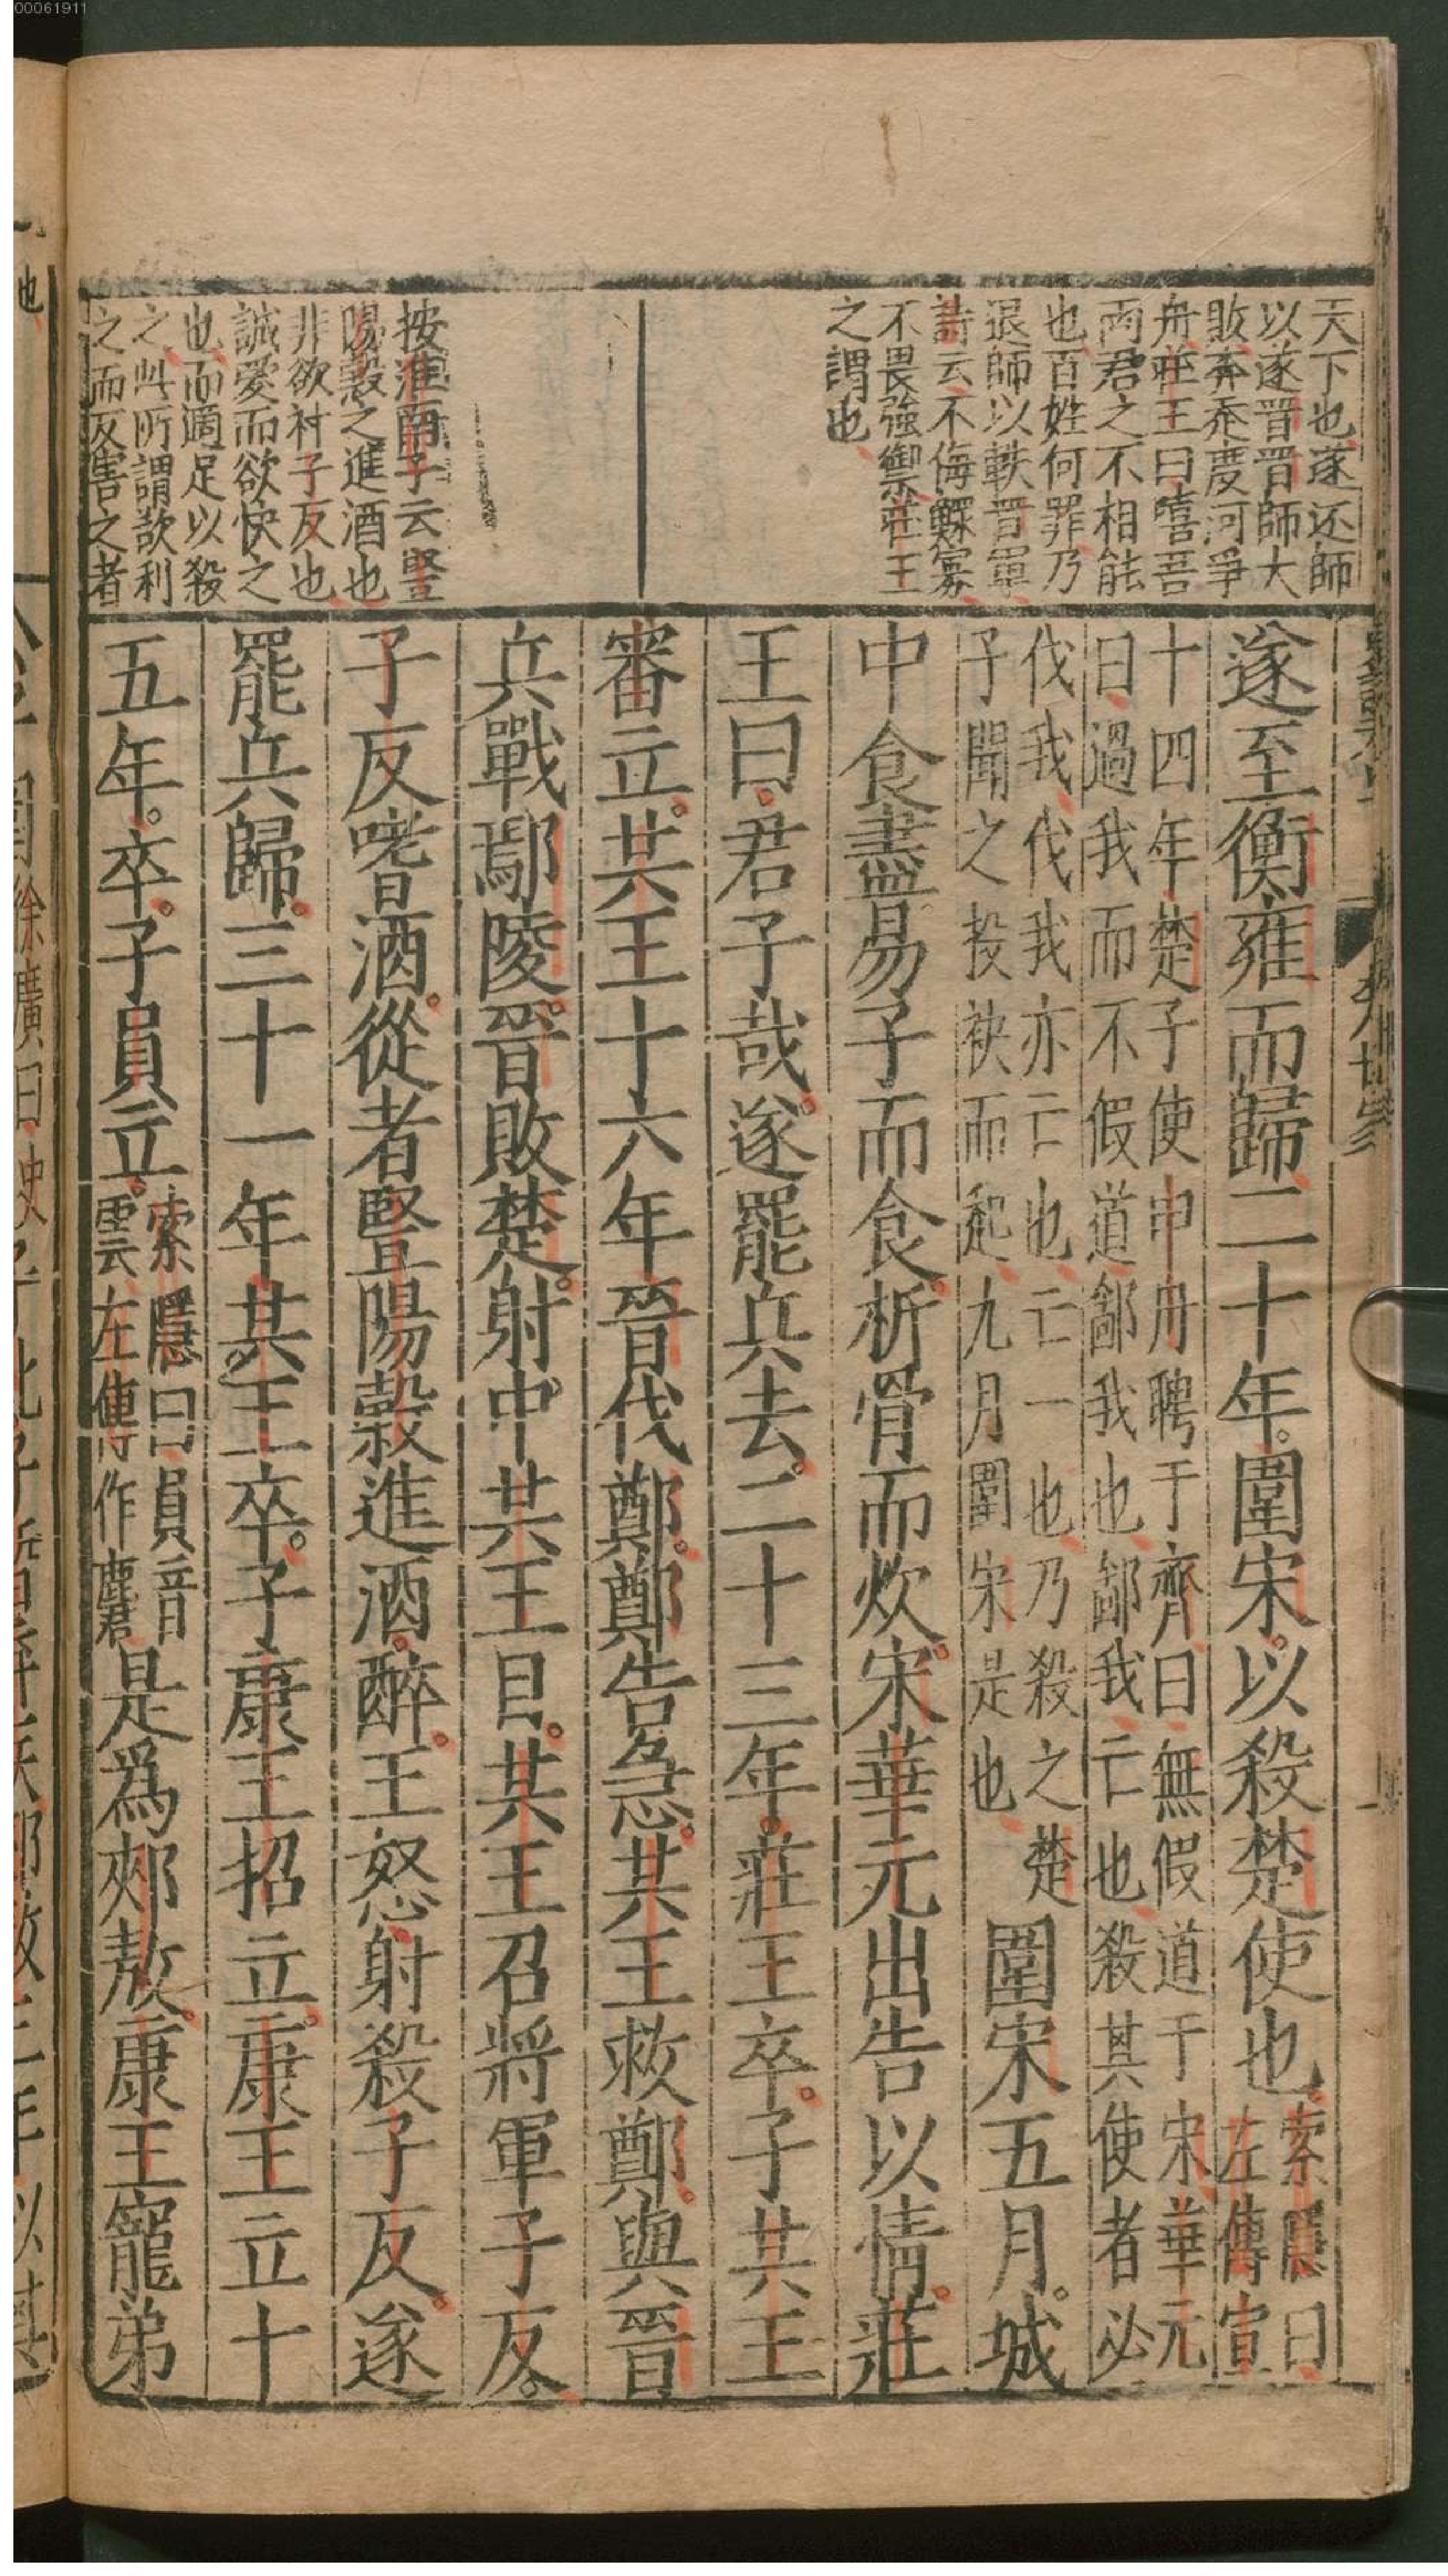 00061911
天下也遂还師
以遂晋晋師大
敗奔走度河爭
舟莊王曰嘻吾
兩君之不相能
也百姓何罪乃
退師以軼晋軍
詩云不侮鰥寡
不畏強禦莊王
之謂也
按淮南子云豎
陽穀之進酒也
非欲禍子反也
誠愛而欲快之
也而適足以殺
之此所謂欲利
之而反害之者
遂至衡雍而歸二十年圍宋以殺楚使也索隱曰左傳宣
十四年楚子使申舟聘于齊曰無假道于宋華元
曰過我而不假道鄙我也鄙我亡也殺其使者必
伐我伐我亦亡也亡一也乃殺之楚
子聞之投袂而起九月圍宋是也
圍宋五月城
中食盡易子而食析骨而炊宋華元出告以情莊
王曰君子哉遂罷兵去二十三年莊王卒子共王
審立共王十六年晉伐鄭鄭告急共王救鄭與晉
兵戰鄢陵晉敗楚射中共王目共王召將軍子反
子反嗜酒從者豎陽穀進酒醉王怒射殺子反遂
罷兵歸三十一年共王卒子康王招立康王立十
五年卒子員立索隱曰員音雲左傳作麏是爲郟敖康王寵弟